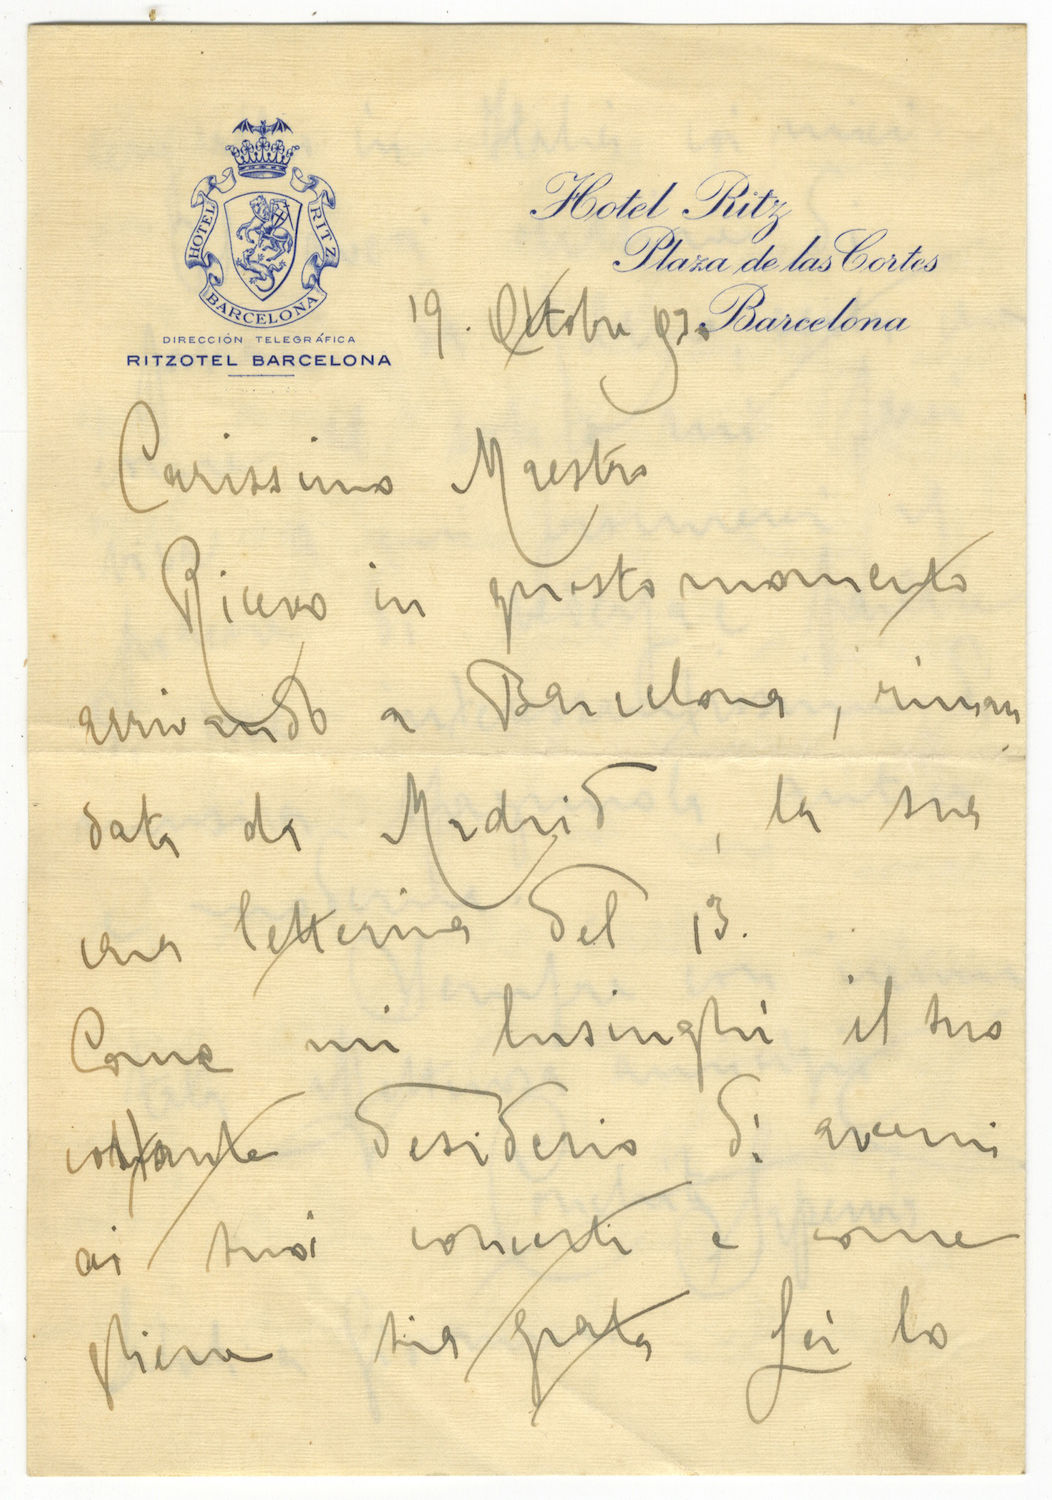 HOTEL RITZ
BARCELONA
DIRECCIÓN TELEGRÁFICA
RITZOTEL BARCELONA
Hotel Ritz
Plaza de las Cortes
Barcelona
19. Ottobre 930
Carissimo Maestro
Ricevo in questo momento
arrivando a Barcelona, riman
data da Madrid, la sua
cara letterina del 13.
Come mi lusinghi il suo
costante desiderio di avermi
ai suoi concerti e come
gliene sia grata Lei lo